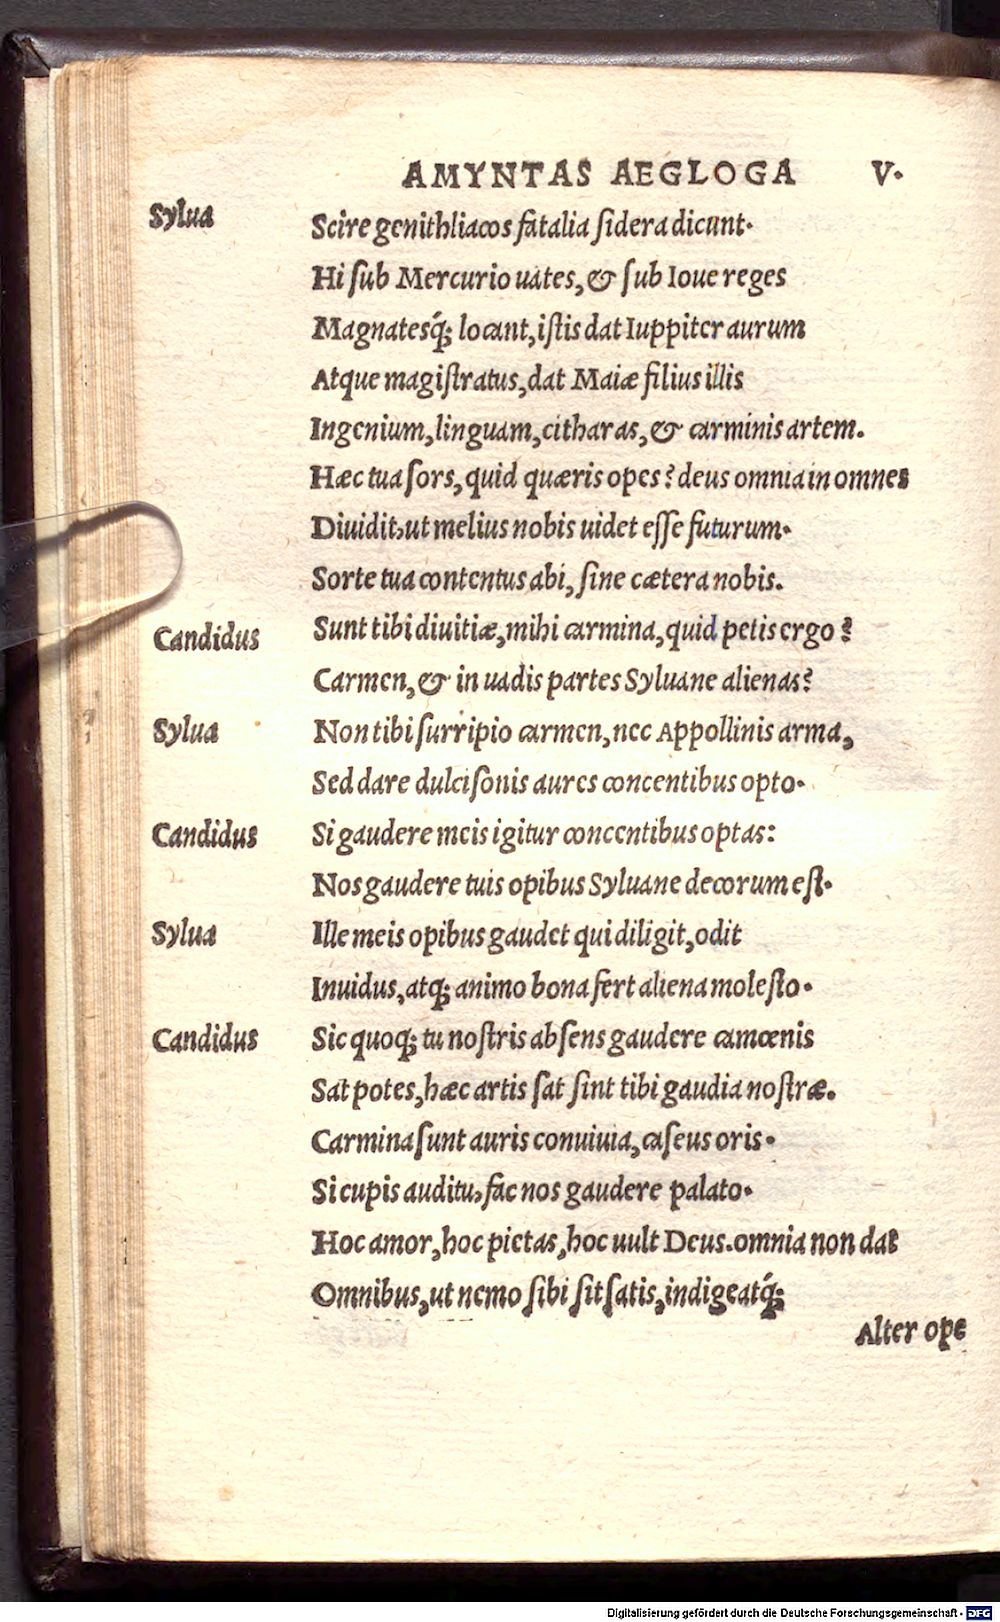 AMYNTAS AEGLOGA V.
Sylua Scire genithliacos fatalia ſidera dicunt.
Hi ſub Mercurio uates, & ſub Ioue reges
Magnatesq́; locant, iſtis dat Iuppiter aurum
Atque magiſtratus, dat Maiæ filius illis
Ingenium, linguam, citharas, & carminis artem.
Hæc tua ſors, quid quæris opes? deus omnia in omnes
Diuidit, ut melius nobis uidet eſſe futurum.
Sorte tua contentus abi, ſine cætera nobis.
Candidus Sunt tibi diuitiæ, mihi carmina, quid petis ergo?
Carmen, & in uadis partes Syluane alienas?
Sylua Non tibi ſurripio carmen, nec Appollinis arma,
Sed dare dulciſonis aures concentibus opto.
Candidus Si gaudere meis igitur concentibus optas:
Nos gaudere tuis opibus Syluane decorum eſt.
Sylua Ille meis opibus gaudet qui diligit, odit
Inuidus, atq; animo bona fert aliena moleſto.
Candidus Sic quoq; tu noſtris abſens gaudere camœnis
Sat potes, hæc artis ſat ſint tibi gaudia noſtræ.
Carmina ſunt auris conuiuia, caſeus oris.
Si cupis auditu, fac nos gaudere palato.
Hoc amor, hoc pietas, hoc uult Deus. omnia non dat
Omnibus, ut nemo ſibi ſit ſatis, indigeatq́;
Alter ope
Digitalisierung gefördert durch die Deutsche Forschungsgemeinschaft - DFG